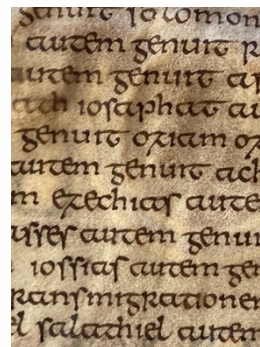 genuit salomon
autem genuit r
autem genuit a
ach iosaphat au
genuit oziam oz
autem genuit ach
m ezechias aute
asses autem genui
iossias autem gen
ransmigrationem
el salathiel autem